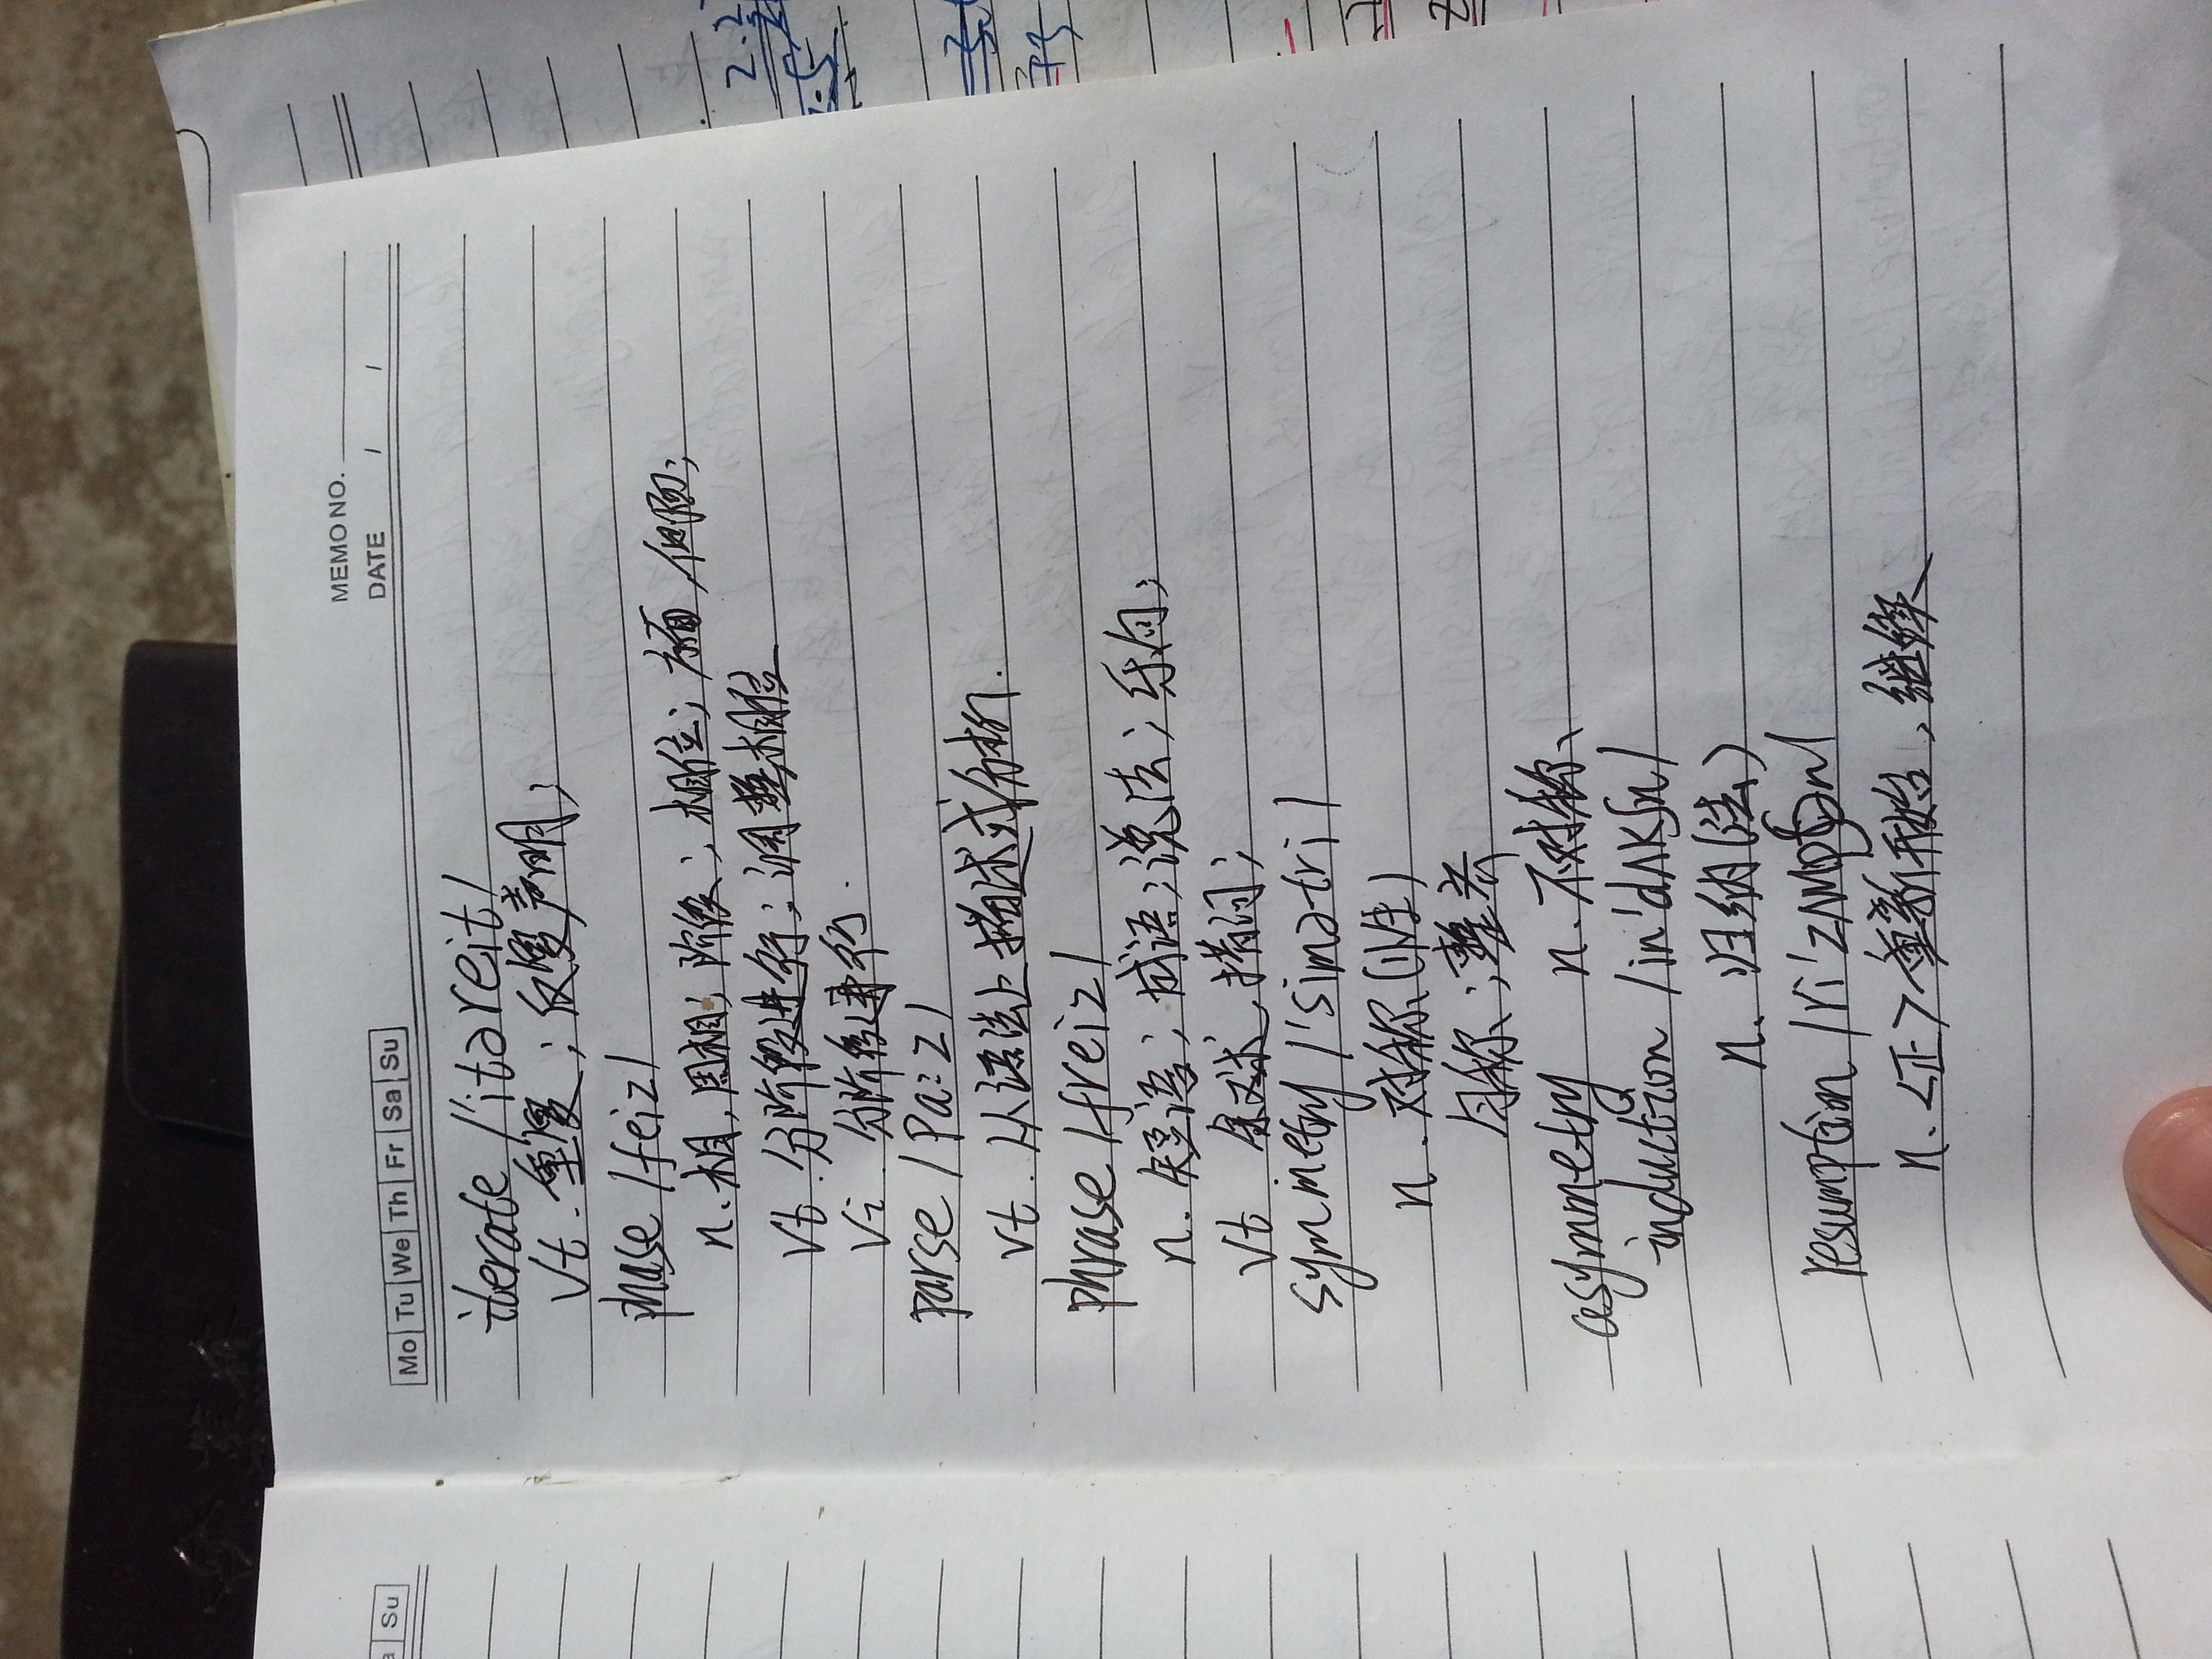 Su
MEMO NO.
DATE / /
Mo Tu We Th Fr Sa Su
iterate /'itəreit/
vt. 重复；反复声明；
phase /feiz/
n. 相，周相；阶段；相位；方面，
vt. 分阶段进行；调整相位
vi. 分阶段进行.
parse /Pa:z/
vt. 从语法上描述或分析.
phrase /freiz/
n. 短语；成语；说法；乐句；
vt. 叙述，措词；
symmetry /'simətri/
n. 对称(性)
匀称；整齐
asymmetry n. 不对称、
induction /in'dʌkʃn/
n. 归纳(法)
resumption /ri'zʌmpʃən/
n. <正>重新开始，继续